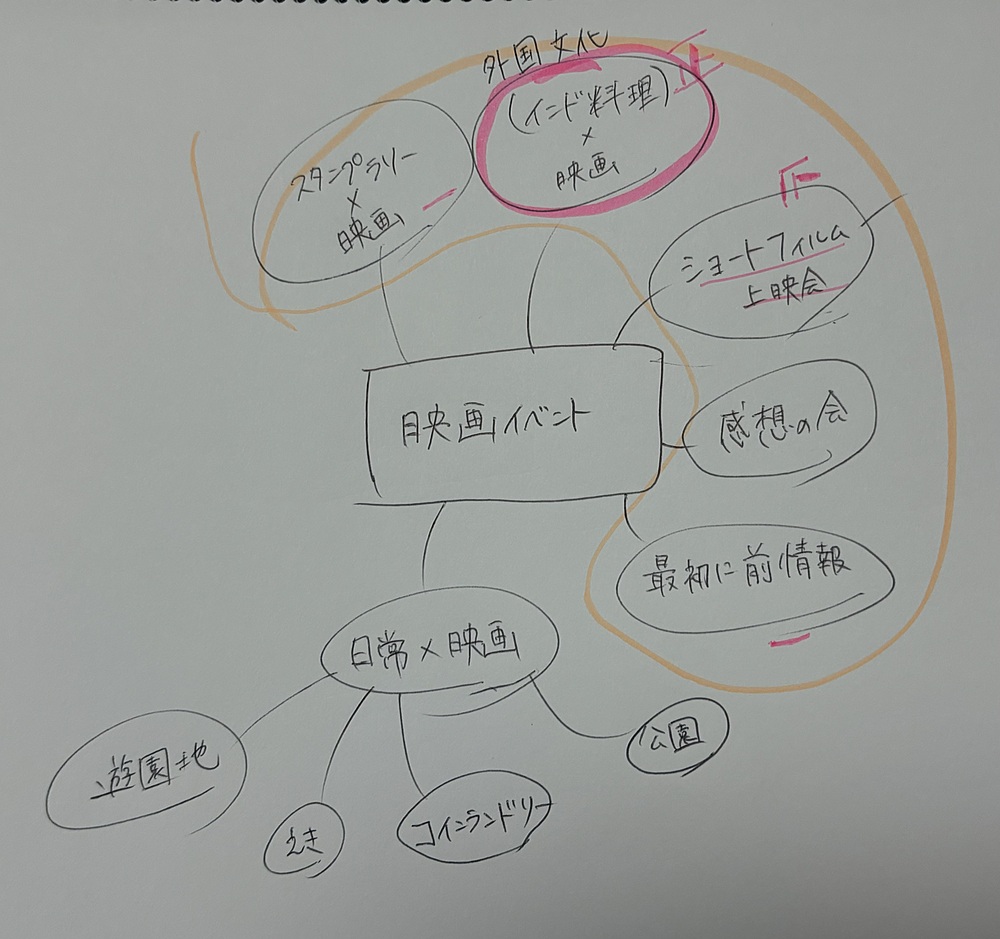 外国文化
(インド料理)
×
映画
正
スタンプラリー
×
映画
ショートフィルム
上映会
映画イベント
感想の会
最初に前情報
日常×映画
遊園地
えき
コインランドリー
公園